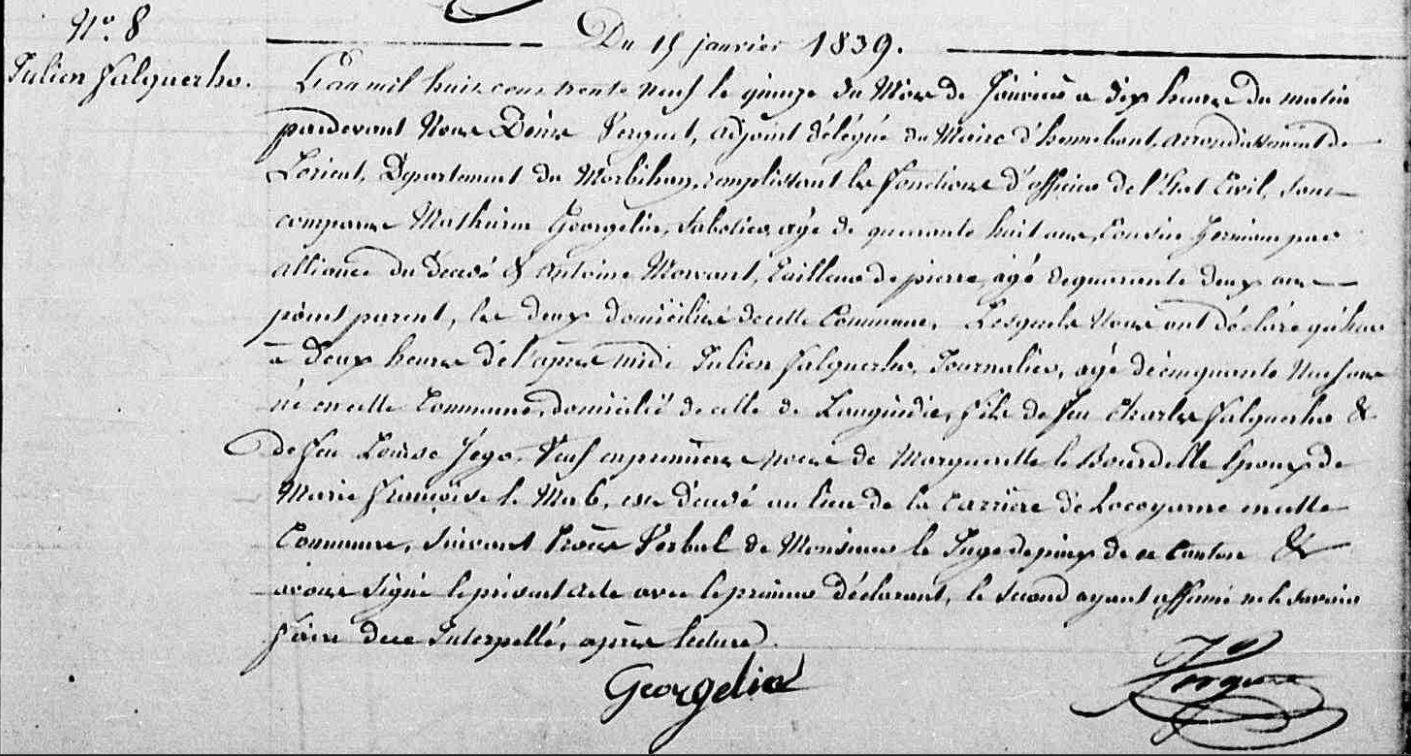 N°. 8
Du 15 janvier 1839.
Julien Falquerho.
L'an mil huit cent trente neuf le quinze du Mois de Janvier a dix heures du matin
pardevant Nous Dénis Verguet, adjoint délégué du Maire d'hennebont, arrondissement de
Lorient, Département du Morbihan, remplissant les fonctions d'officier de l'Etat Civil, sont
comparus Mathurin Georgelin, Sabotier, agé de quarante huit ans, Cousin Germain par
alliance du décédé & Antoine Morvant, tailleur de pierre, agé de quarante deux ans
point parent, les deux domiciliés de cette Commune, Lesquels Nous ont déclaré qu'hier
à deux heures de l'après midi Julien Falquerho, Journalier, agé de cinquante Neuf ans
né en cette Commune, domicilié de celle de Languidic, fils de feu Charles Falquerho &
de feu Louise Jégo, Veuf en premières noces de Marguerite le Bourdelle Epoux de
Marie Françoise le , est décédé au lieu de la Carrière de Locoyarne en cette
Commune, suivant Procès Verbal de Monsieur le Juge de paix de ce Canton &
avons signé le présent acte avec le premier déclarant, le second ayant affirmé ne le savoir
faire de ce Interpellé, après lecture.
Georgelin